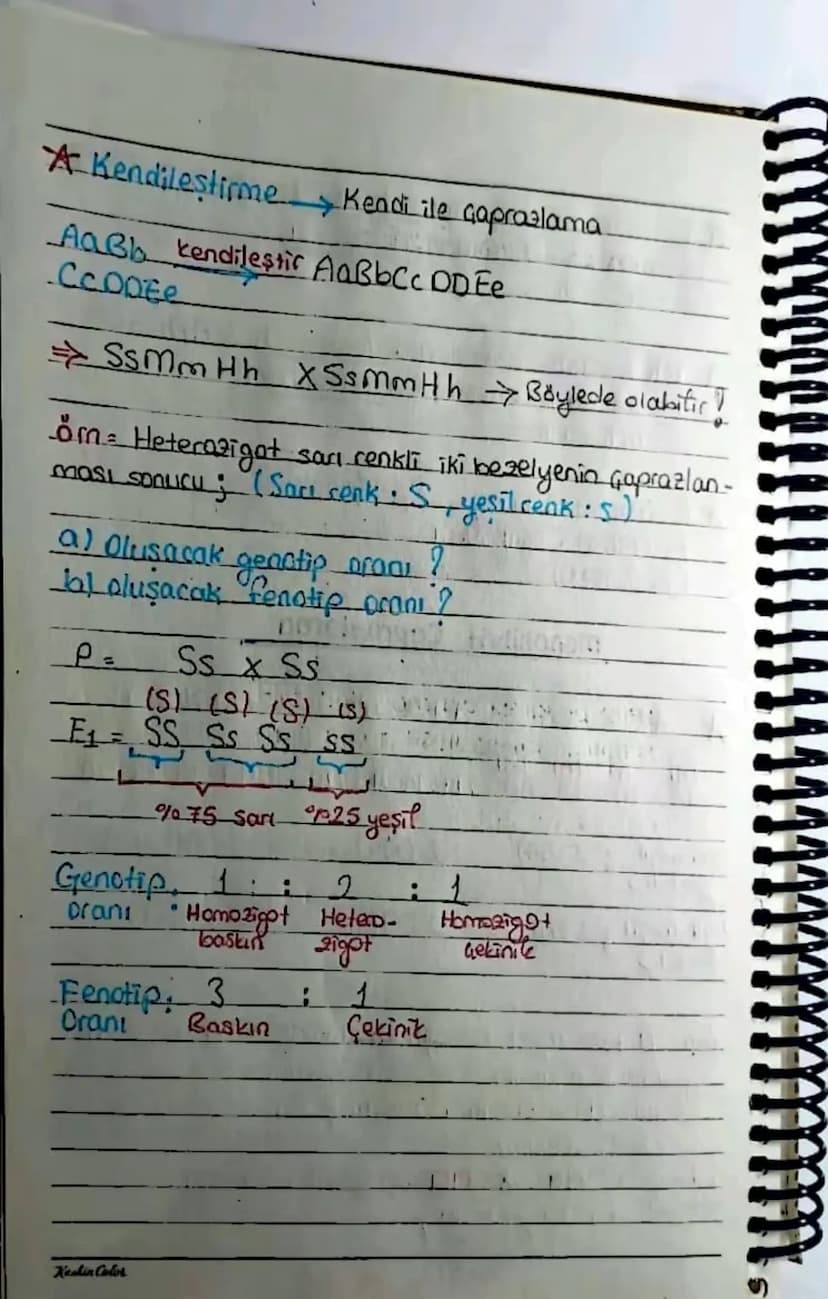 Kendileştirme → Kendi ile çaprazlama
AaBb kendileştir AaBbCcDDEe
CcDDEe
⇒ SsMmHh X SsMmHh → Böylede olabilir!
örn= Heterozigot sarı renkli iki bezelyenin çaprazlan-
ması sonucu; (Sarı renk: S, yeşil renk: s)
a) Oluşacak genotip oranı?
b) oluşacak fenotip oranı?
P= Ss x Ss
(S) (s) (S) (s)
F1= SS Ss Ss ss
%75 sarı %25 yeşil
Genotip 1 : 2 : 1
oranı • Homozigot Hetero- Homozigot
baskın zigot çekinik
Fenotip: 3 : 1
Oranı Baskın Çekinik
Keskin Color